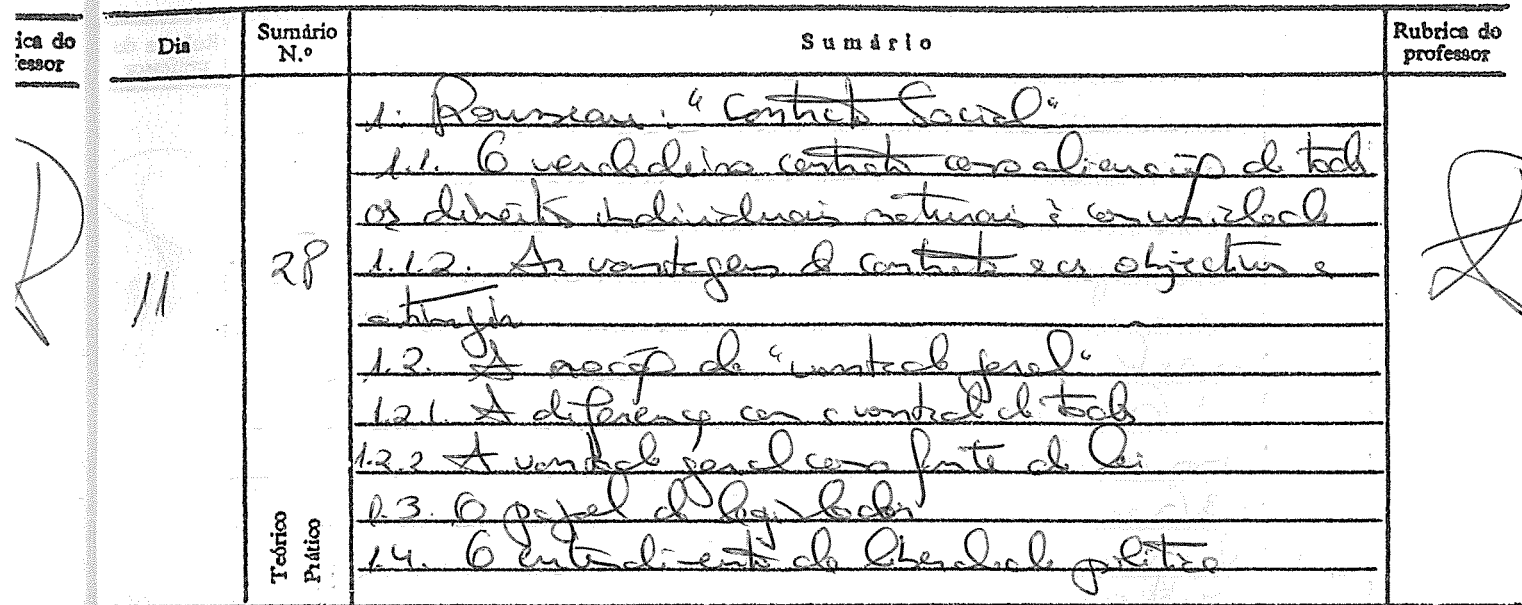 ica do
essor
Dia
Sumário
N.º
Sumário
Rubrica do
professor
11
28
Teórico
Prático
1. Rousseau: "Contrato Social"
1.1. O verdadeiro contrato como alienação de todos
os direitos individuais naturais à comunidade
1.1.2. As vantagens do contrato e os objectivos a
atingir
1.2. A noção de "vontade geral"
1.2.1. A diferença com a vontade de todos
1.2.2 A vontade geral como fonte de lei
1.3. O papel do legislador
1.4. O entendimento da liberdade política